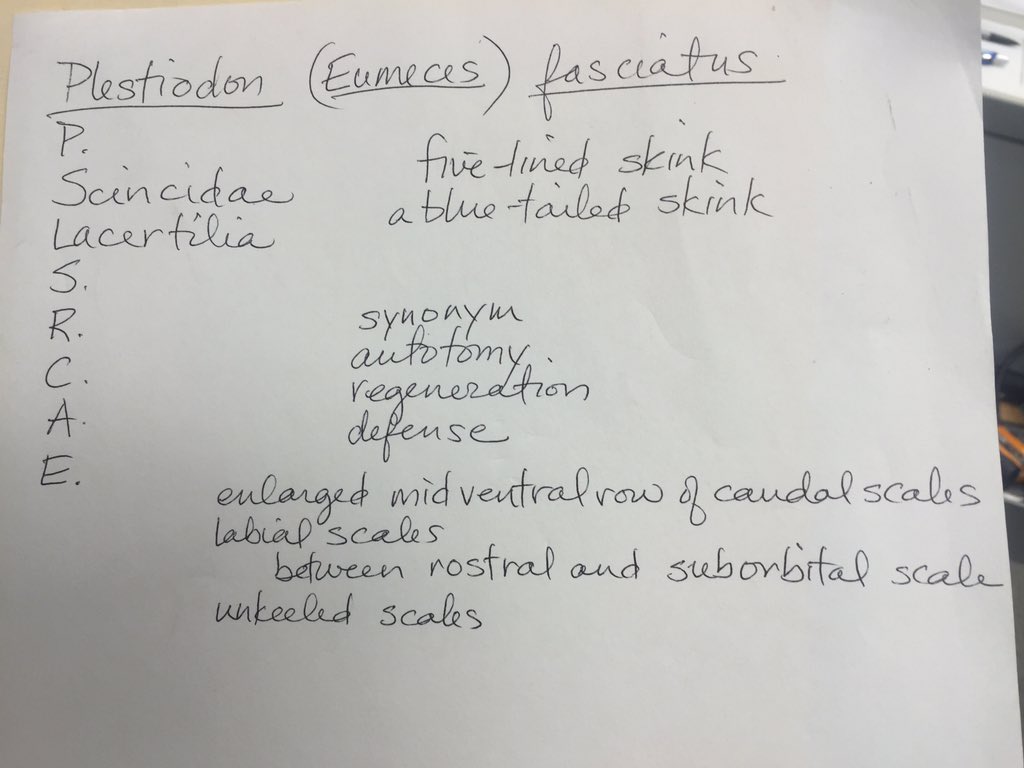 Plestiodon (Eumeces) fasciatus
P.
five-lined skink
Scincidae
a blue-tailed skink
Lacertilia
S.
R.
synonym
autotomy.
C.
regeneration
A.
defense
E.
enlarged midventral row of caudal scales
labial scales
between rostral and suborbital scale
unkeeled scales